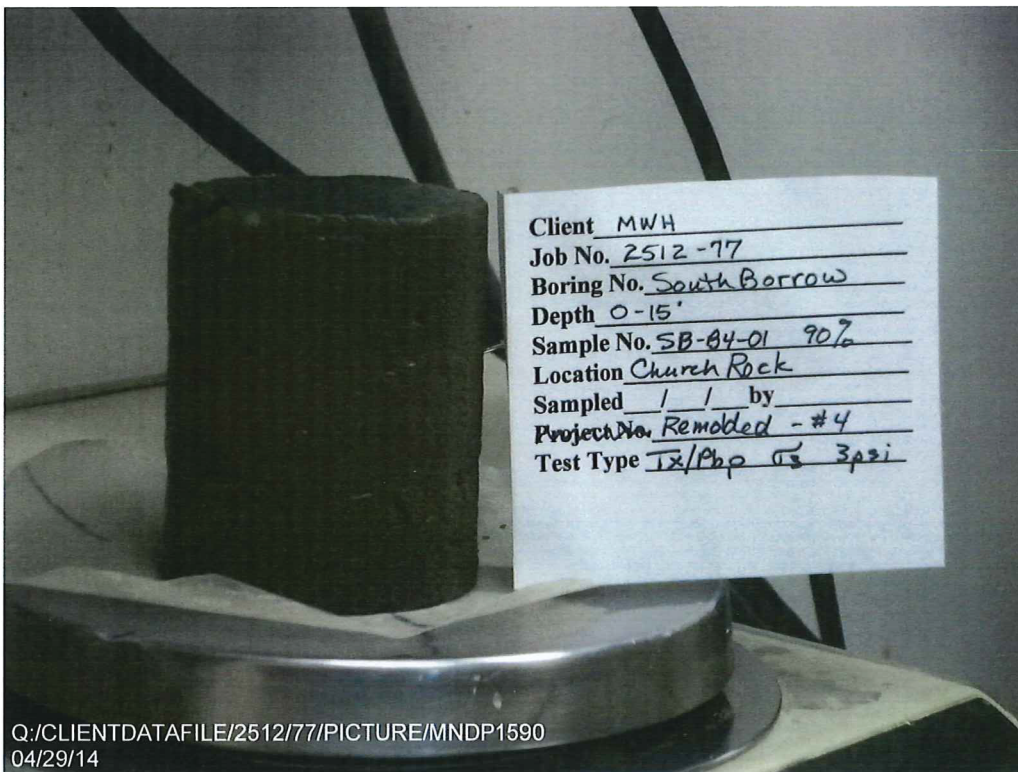 Client MWH
Job No. 2512-77
Boring No. South Borrow
Depth 0-15'
Sample No. SB-B4-01 90%
Location Church Rock
Sampled / / by
Project No. Remolded - #4
Test Type Tx/Pbp σ3 3psi
Q:/CLIENTDATAFILE/2512/77/PICTURE/MNDP1590
04/29/14